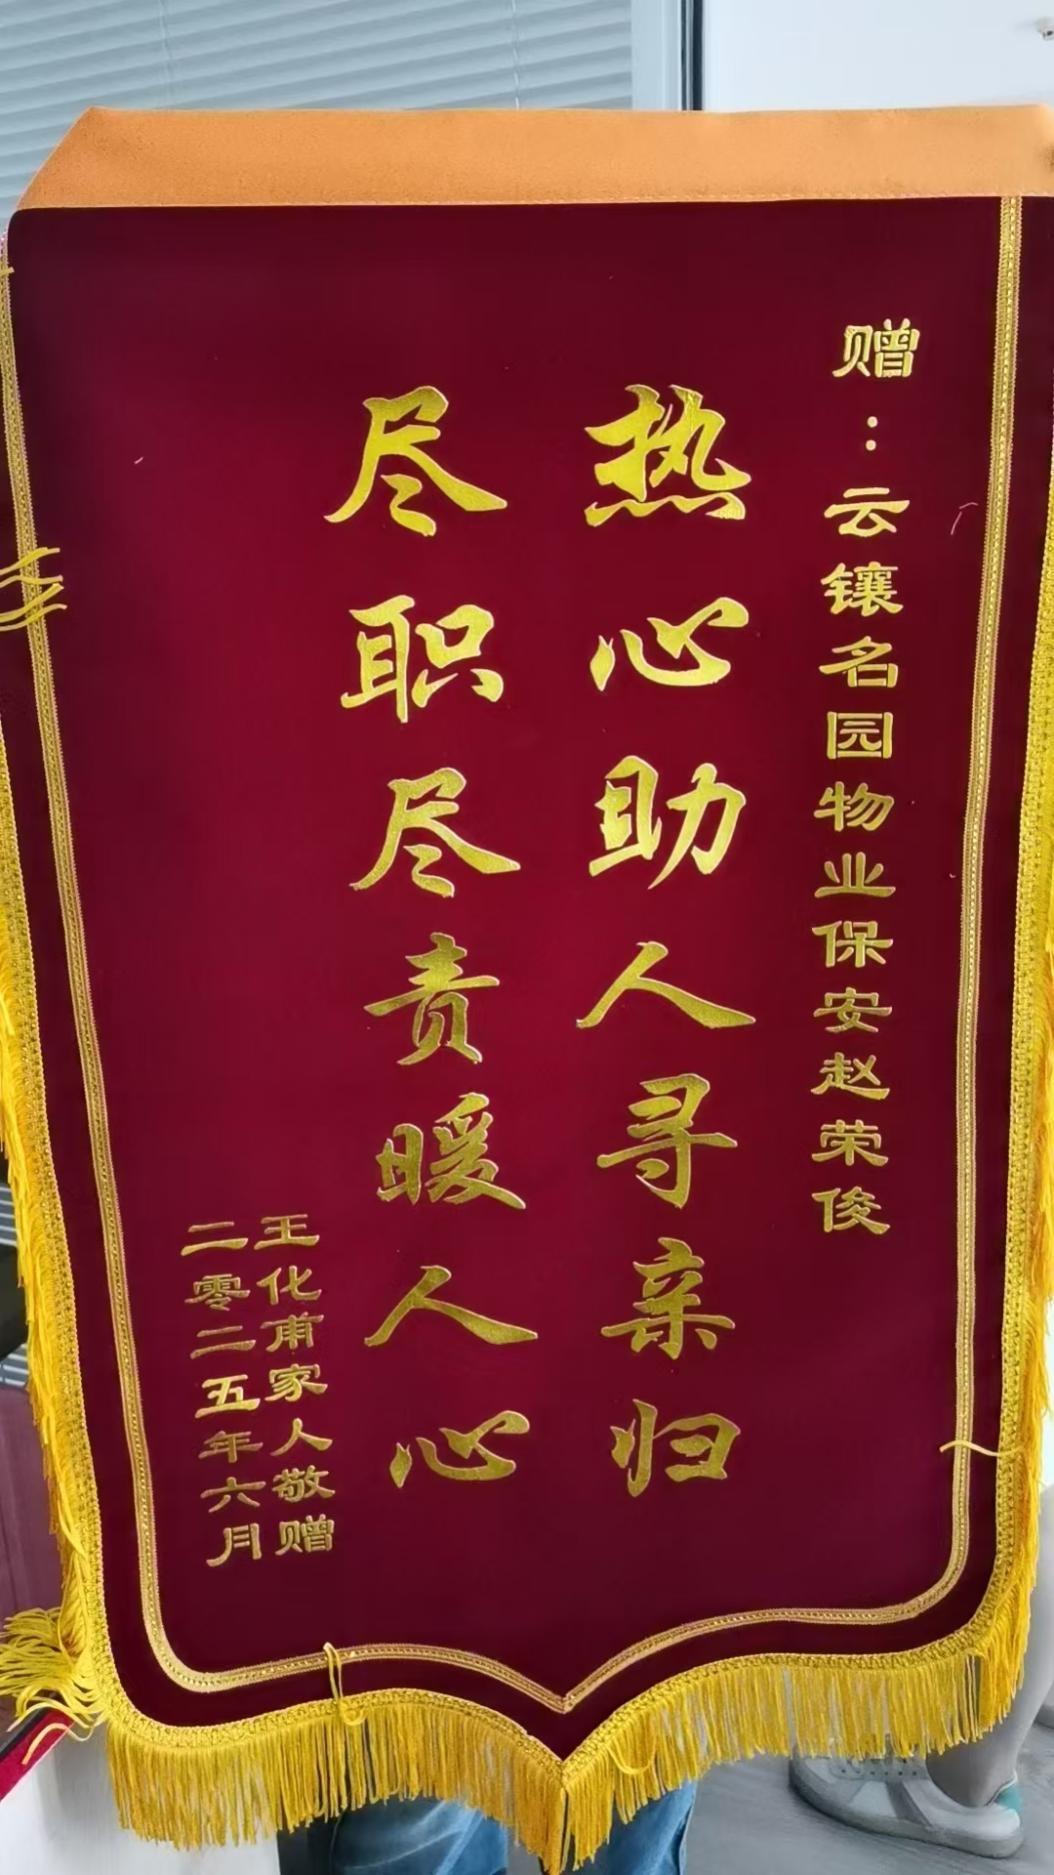 赠：云镶名园物业保安赵荣俊
热心助人寻亲归
尽职尽责暖人心
王化甫家人敬赠
二零二五年六月